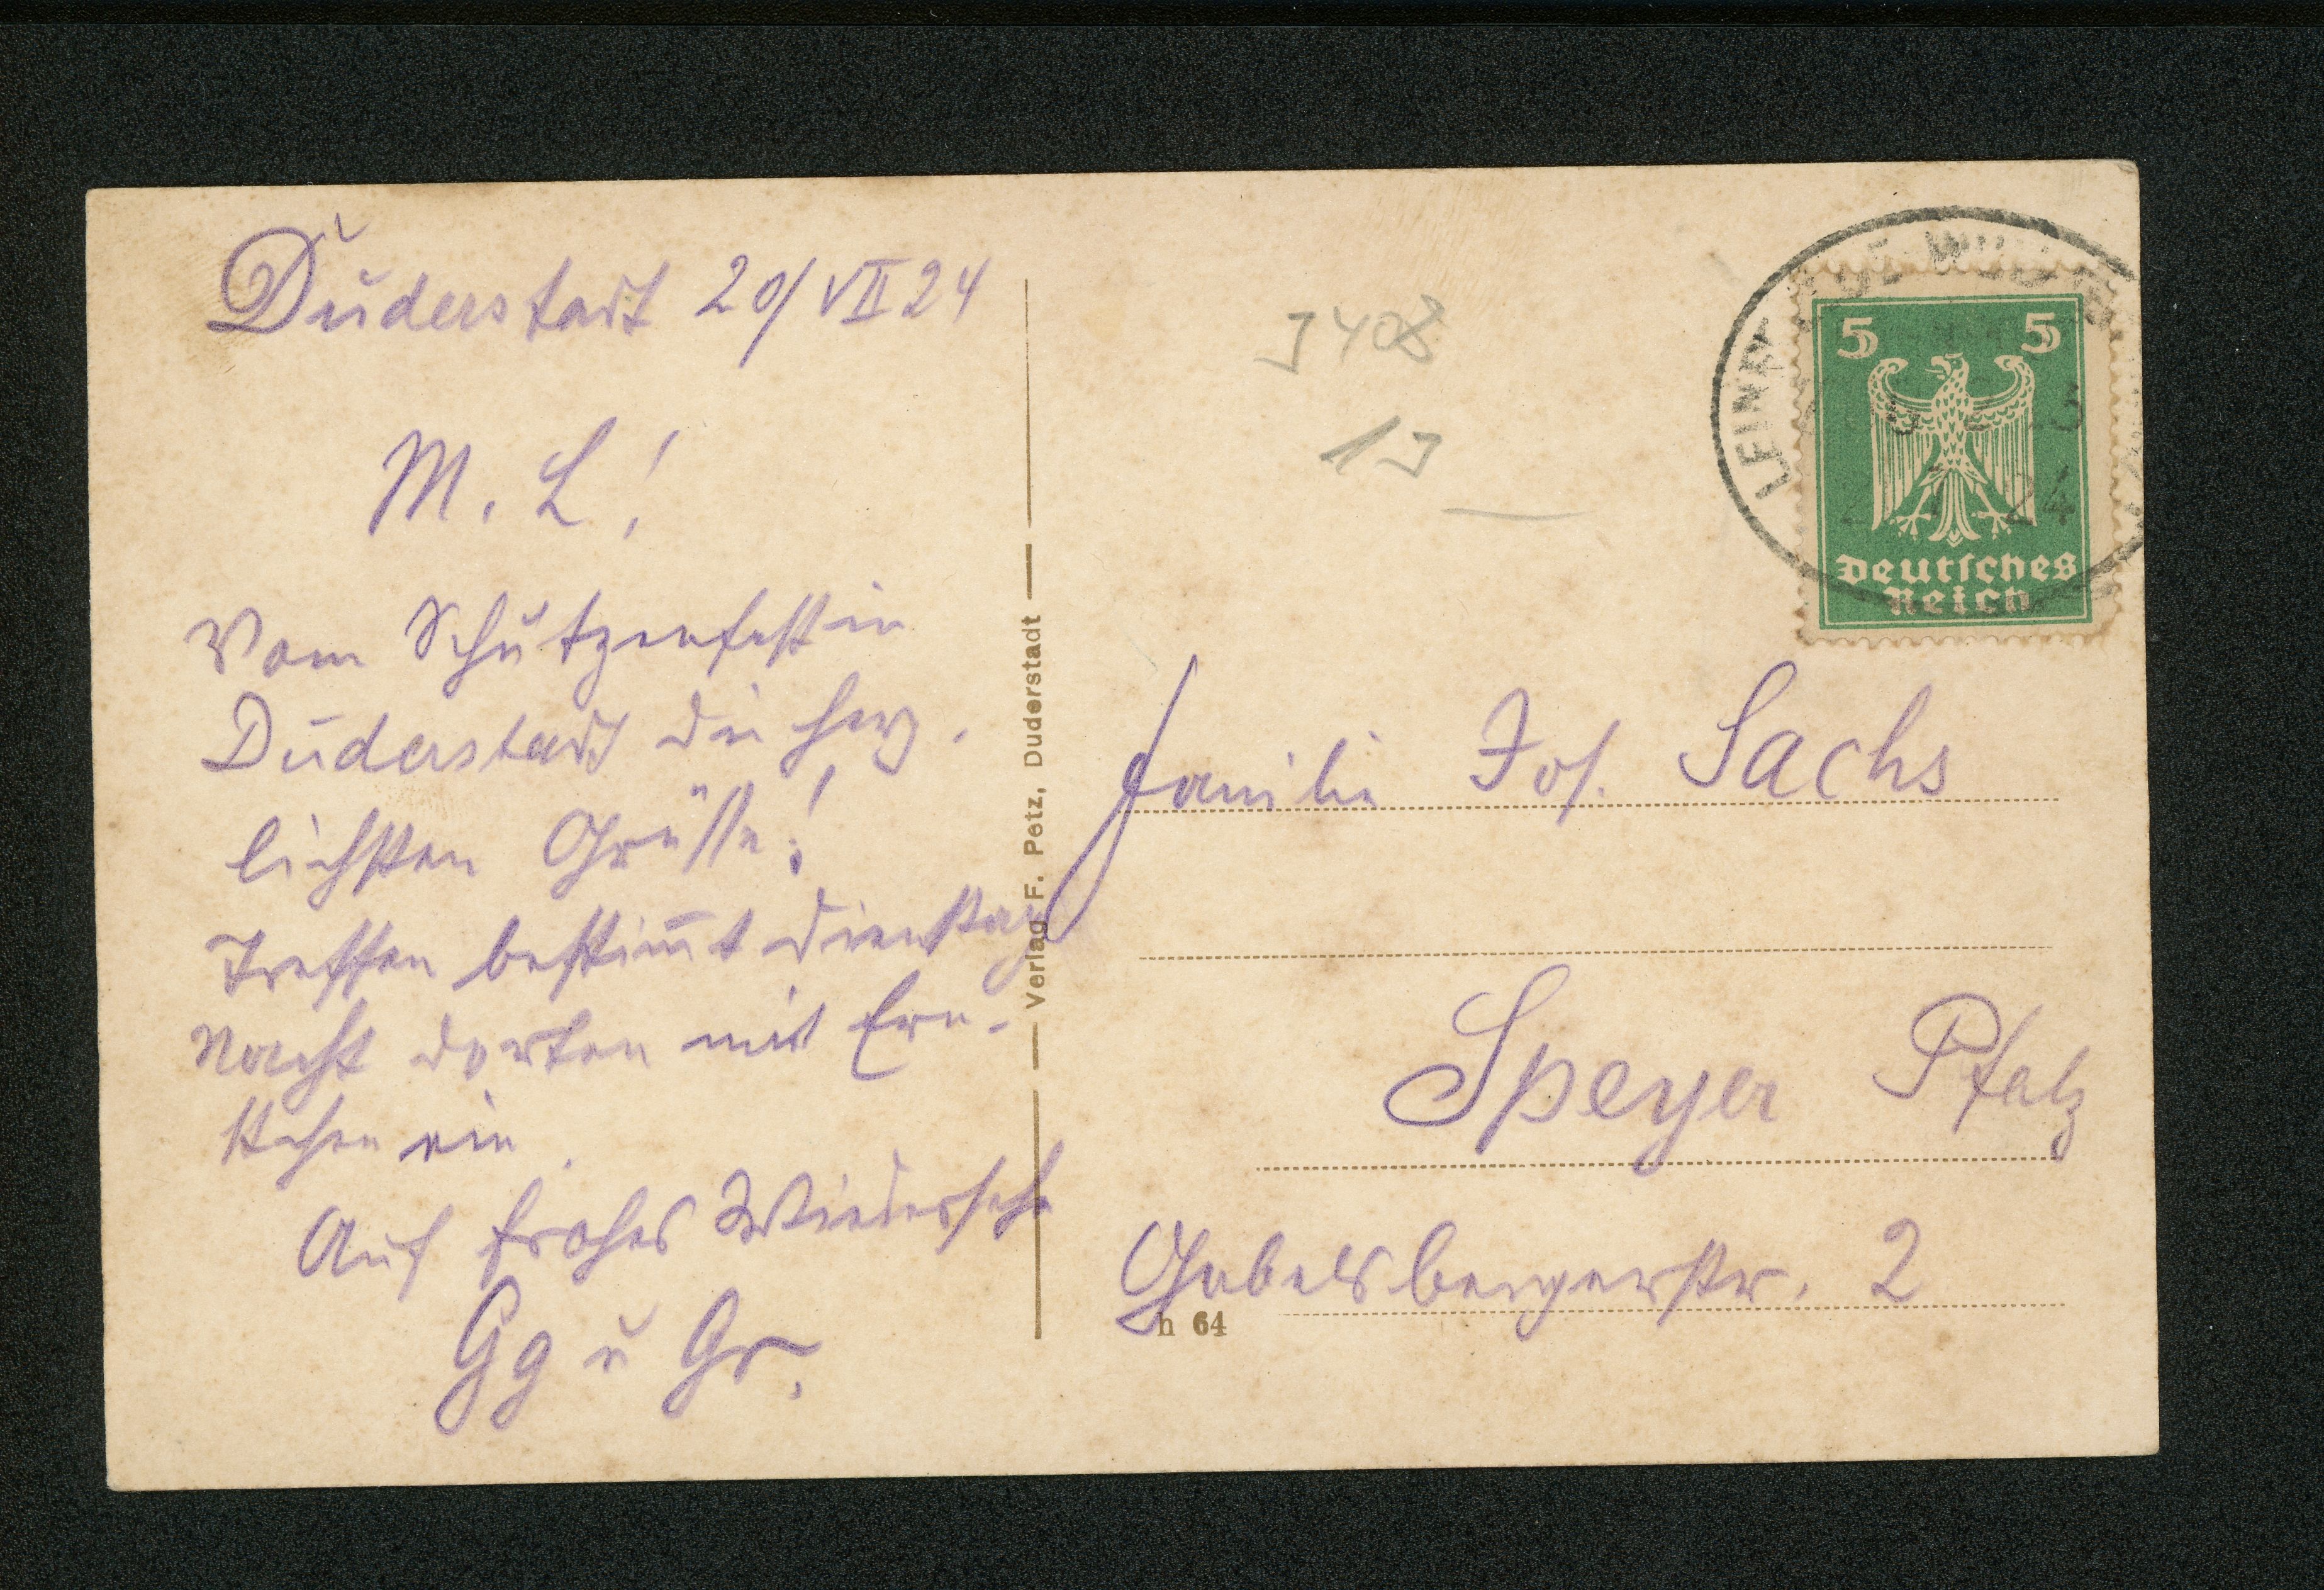 Duderstadt 20/VII 24
M. L!
Vom Schützenfest in
Duderstadt die herz-
lichsten Grüße!
Treffen bestim̅t Dienstag
Nacht dorten mit Ern-
stchen ein.
Auf frohes Wiederseh
Gg u Gr.
Verlag F. Petz, Duderstadt
J 408
1J
5 5
24
Deutsches
Reich
Familie Jos. Sachs
Speyer Pfalz
Gabelsbergerstr. 2
h 64